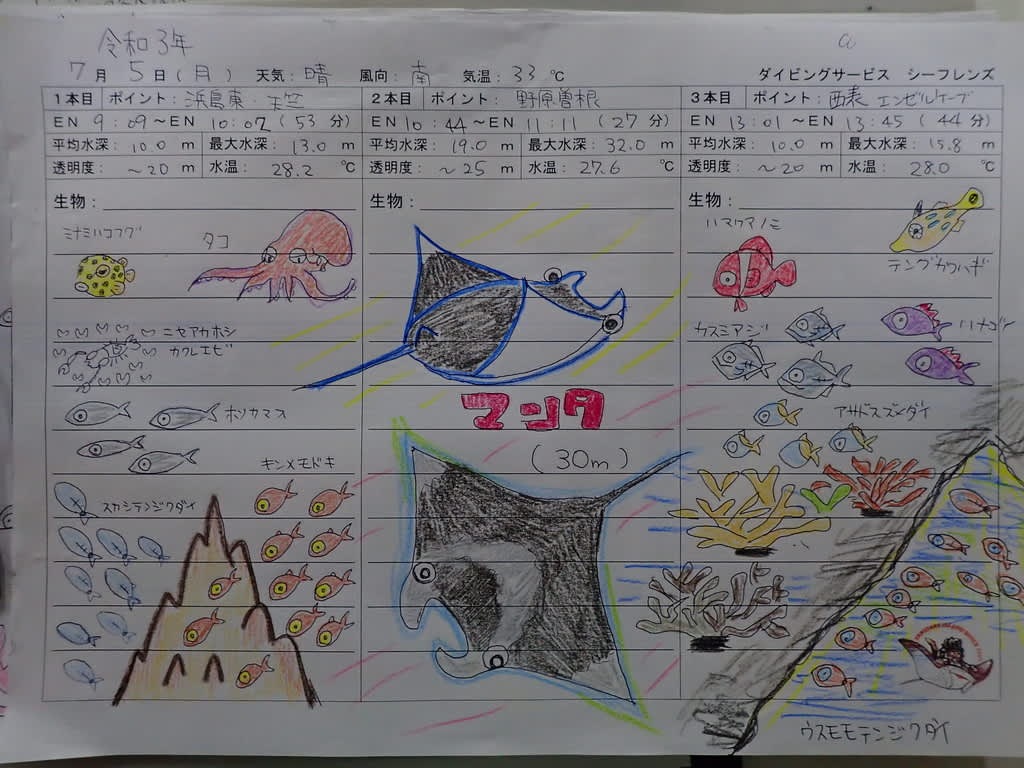 令和3年
7月 5日(月) 天気:晴 風向:南 気温:33℃ ダイビングサービス シーフレンズ
1本目 ポイント:浜島東・天竺
EN 9:09～EN 10:02 (53分)
平均水深:10.0 m 最大水深:13.0 m
透明度:～20 m 水温:28.2℃
生物:
ミナミハコフグ
タコ
ニセアカホシ
カクレエビ
ホソカマス
キンメモドキ
スカシテンジクダイ
2本目 ポイント:野原曽根
EN 10:44～EN 11:11 (27分)
平均水深:19.0 m 最大水深:32.0 m
透明度:～25 m 水温:27.6℃
生物:
マンタ
(30m)
3本目 ポイント:西表 エンゼルケーブ
EN 13:01～EN 13:45 (44分)
平均水深:10.0 m 最大水深:15.8 m
透明度:～20 m 水温:28.0℃
生物:
ハマクマノミ
テングカワハギ
カスミアジ
ハナゴイ
アサドスズメダイ
ウスモモテンジクダイ